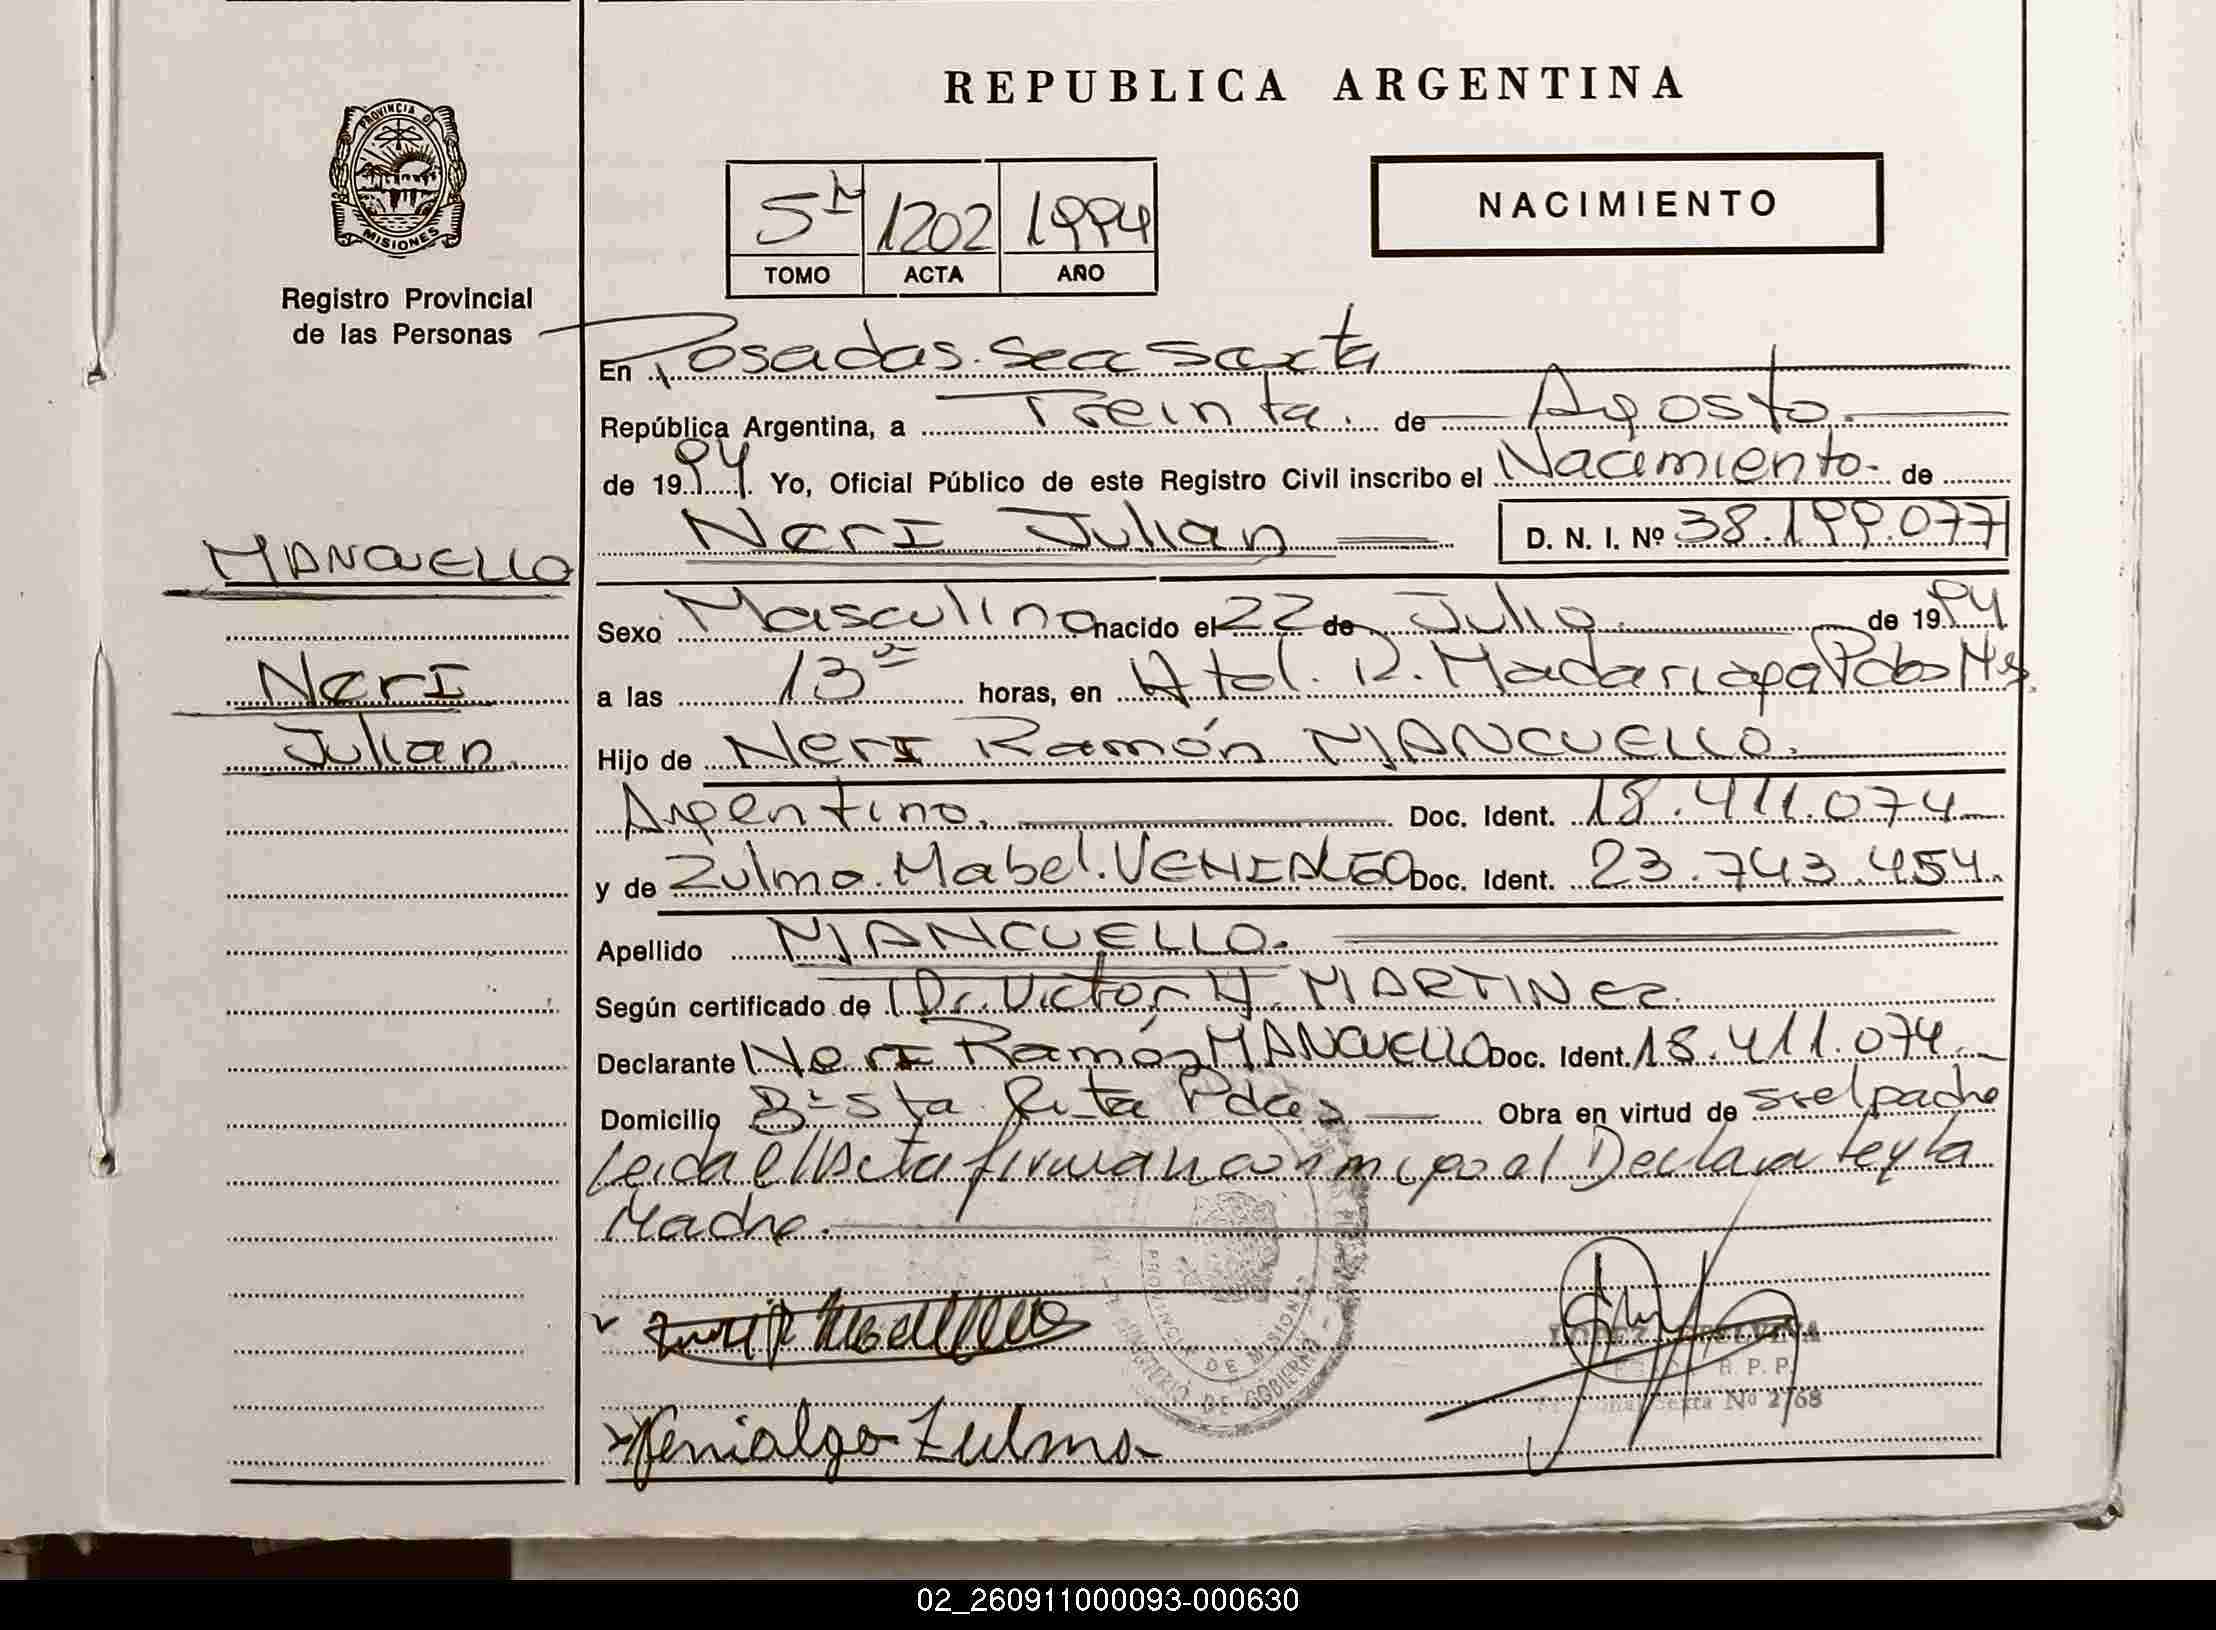 REPUBLICA ARGENTINA
PROVINCIA DE
MISIONES
Registro Provincial
de las Personas
5 1202 1994
TOMO ACTA AÑO
NACIMIENTO
En Posadas. Sec Sexta
República Argentina, a Treinta. de Agosto.
de 1994. Yo, Oficial Público de este Registro Civil inscribo el Nacimiento. de
Neri Julian D. N. I. Nº 38.199.077
MANCUELLO
Neri
Julian.
Sexo Masculino nacido el 22 de Julio. de 1994
a las 13 horas, en Htal. R. Madariaga Pdas Ms.
Hijo de Neri Ramón MANCUELLO.
Argentino. Doc. Ident. 18.411.074
y de Zulma. Mabel. VENIALGO Doc. Ident. 23.743.454.
Apellido MANCUELLO.
Según certificado de Dr. Victor H. MARTINEZ.
Declarante Neri Ramón MANCUELLO Doc. Ident. 18.411.074.
Domicilio Bº Sta. Rita Pdas Obra en virtud de ser el padre
Leida el Acta firman conmigo el Declarante y la
Madre.
PROVINCIA DE MISIONES
MINISTERIO DE GOBIERNO
Venialgo Zulma
LOPEZ
R. P. P.
Sexta Nº 2768
02_260911000093-000630